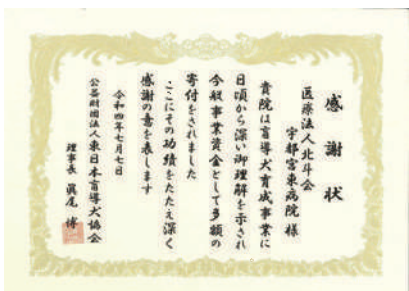 感謝状
医療法人北斗会
宇都宮東病院様
貴院は盲導犬育成事業に
日頃から深い御理解を示され
今般事業資金として多額の
寄付をされました
ここにその功績をたたえ深く
感謝の意を表します
令和四年七月七日
公益財団法人東日本盲導犬協会
理事長 眞尾 博